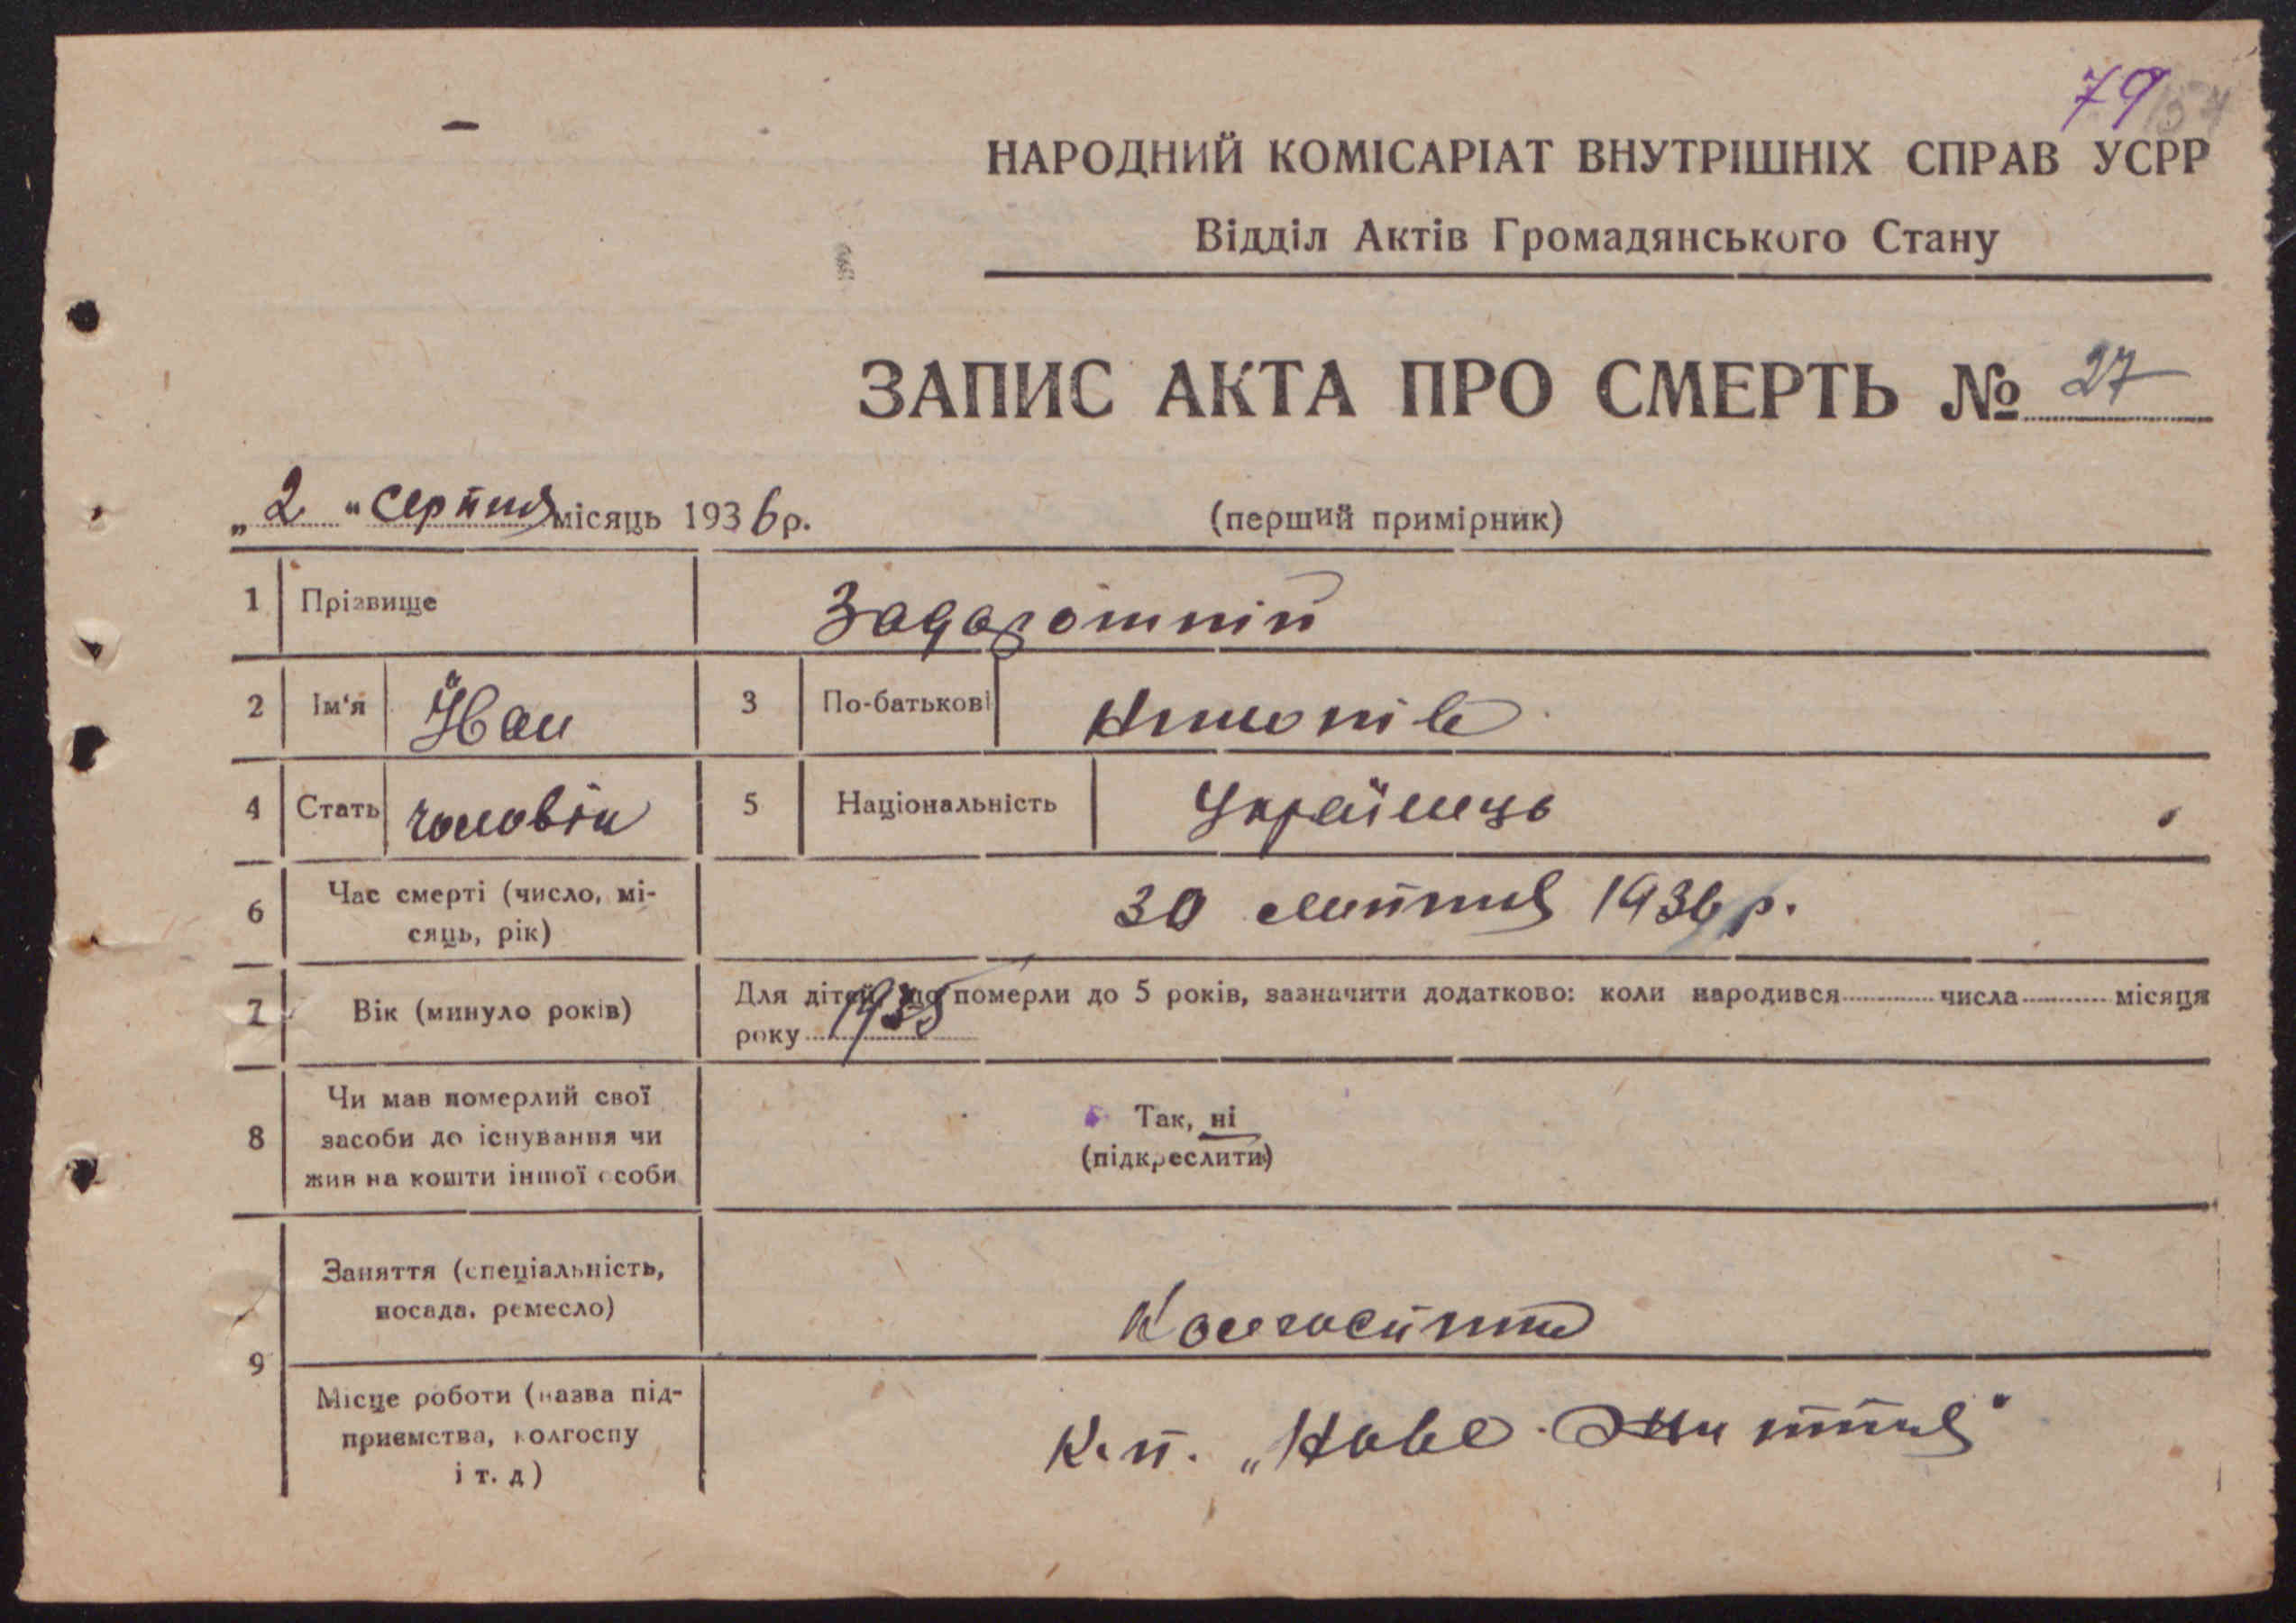 79
НАРОДНИЙ КОМІСАРІАТ ВНУТРІШНІХ СПРАВ УСРР
Відділ Актів Громадянського Стану
ЗАПИС АКТА ПРО СМЕРТЬ № 27
„ 2 " серпня місяць 1936 р.
(перший примірник)
1 Прізвище Задарожній
2 Ім'я Йван 3 По-батькові
4 Стать чоловік 5 Національність Українець
6 Час смерті (число, мі-
сяць, рік) 30 липня 1936 р.
7 Вік (минуло років) Для дітей, що померли до 5 років, зазначити додатково: коли народився числа місяця
року 1935
8 Чи мав померлий свої
засоби до існування чи
жив на кошти іншої особи
Так, ні
(підкреслити)
9 Заняття (спеціальність,
посада, ремесло)
Місце роботи (назва під-
приємства, колгоспу
і т. д)
К.п. „Нове Життя"